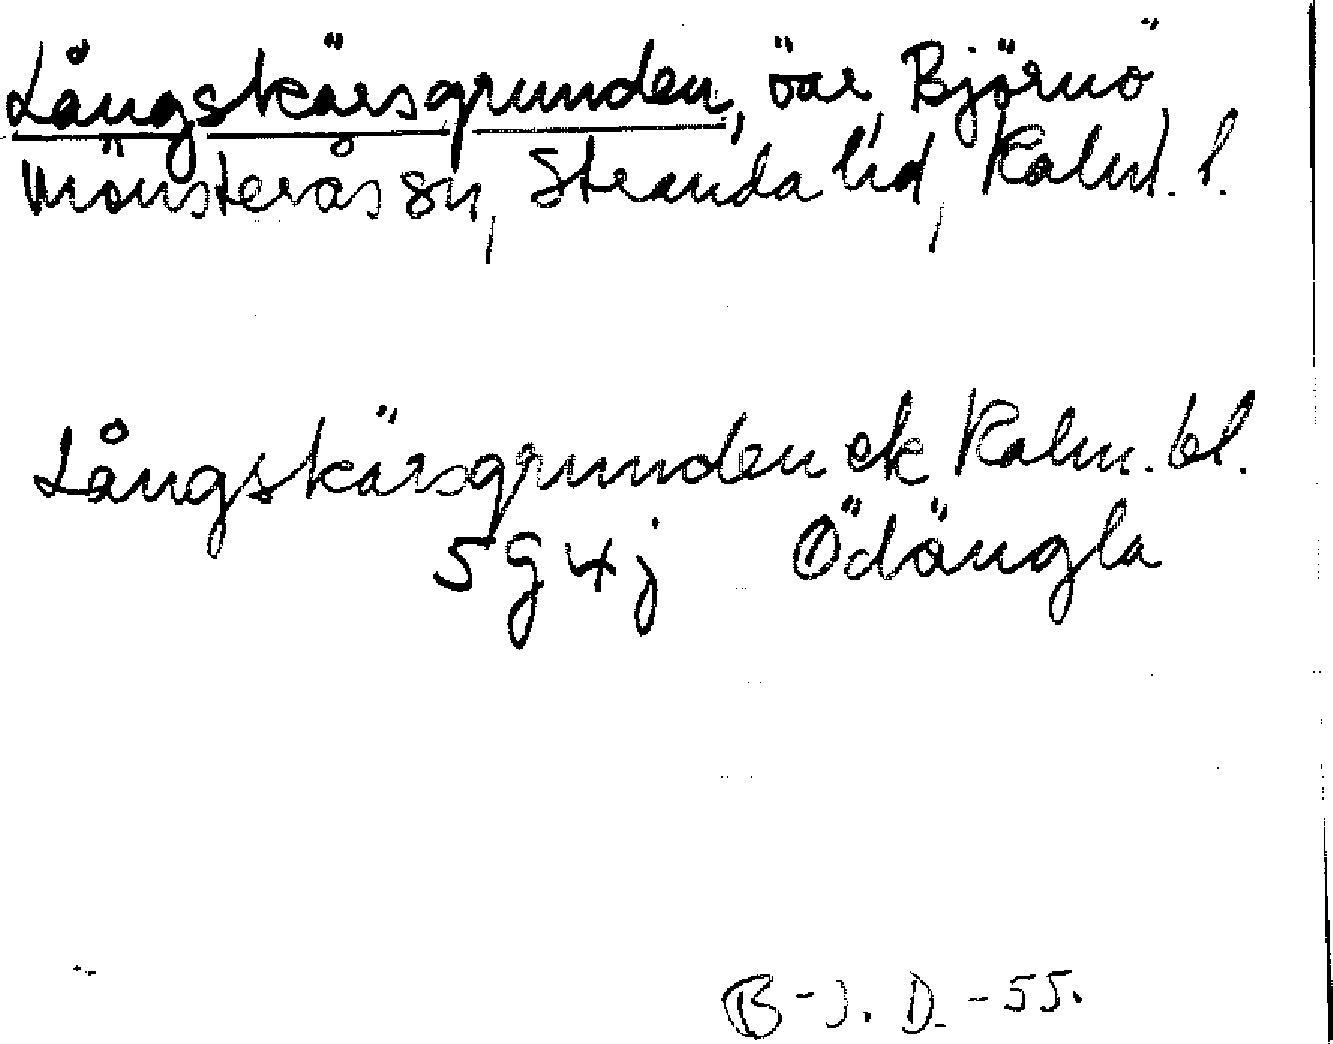 Långskärsgrunden, öar, Björnö
Mönsterås sn, Stranda hd, Kalm. l.
Långskärsgrunden ek Kalm. bl.
5 G 4 j Ödängla
B-J. D. -55.